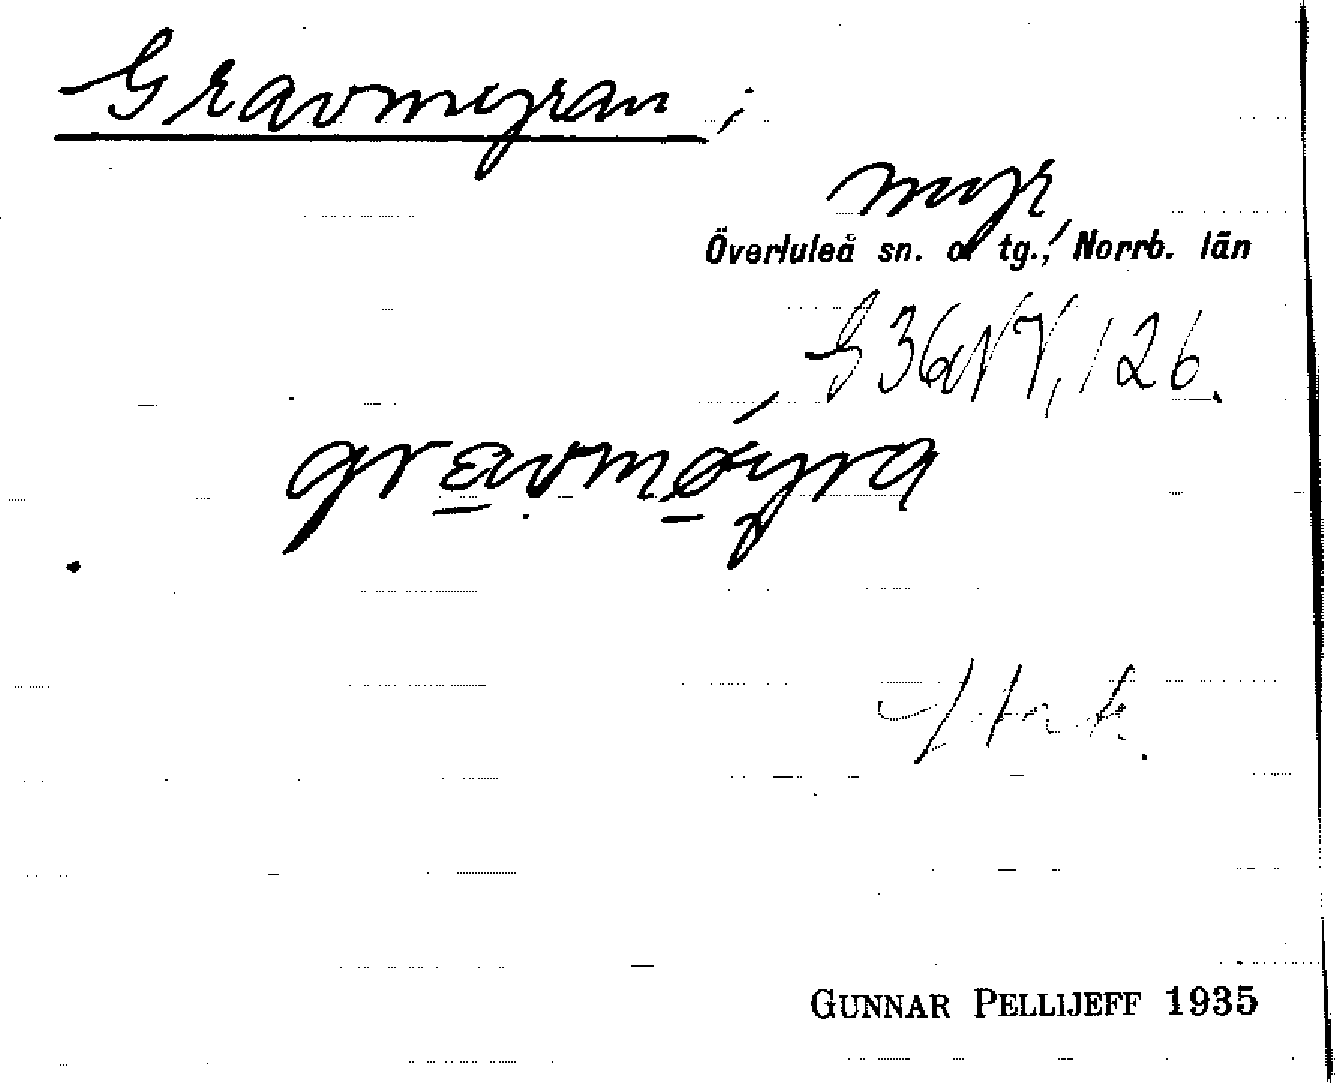 Gravmyran;
myr,
Överluleå sn. o. tg., Norrb. län
G36aNV, 126.
grævmøyra
GUNNAR PELLIJEFF 1935